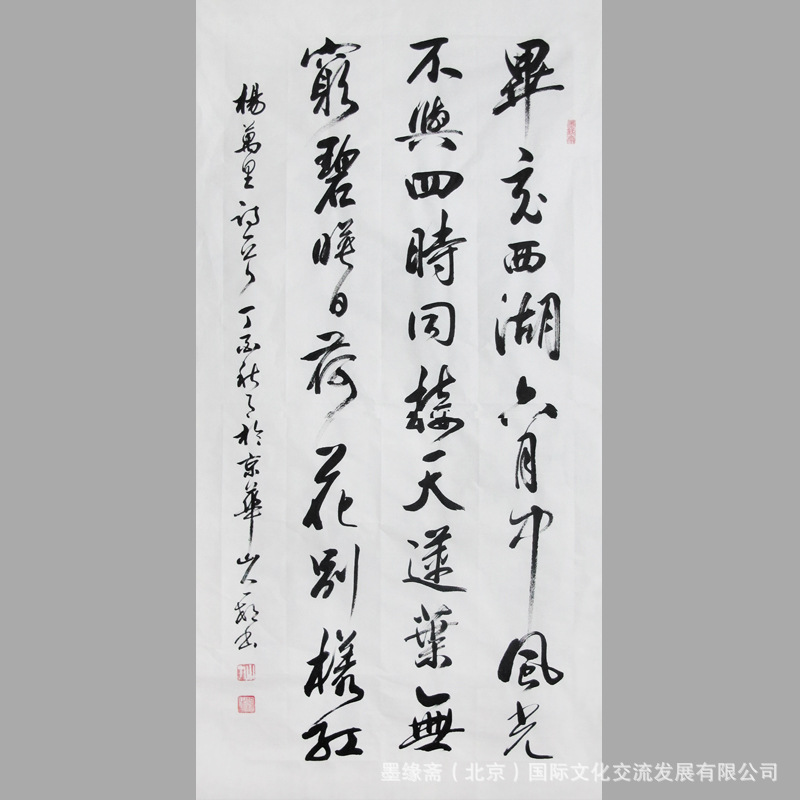 畢竟西湖六月中風光
不與四時同接天蓮葉無
窮碧暎日荷花別樣紅
楊萬里詩一首 丁酉秋月於京華 書
墨缘斋（北京）国际文化交流发展有限公司